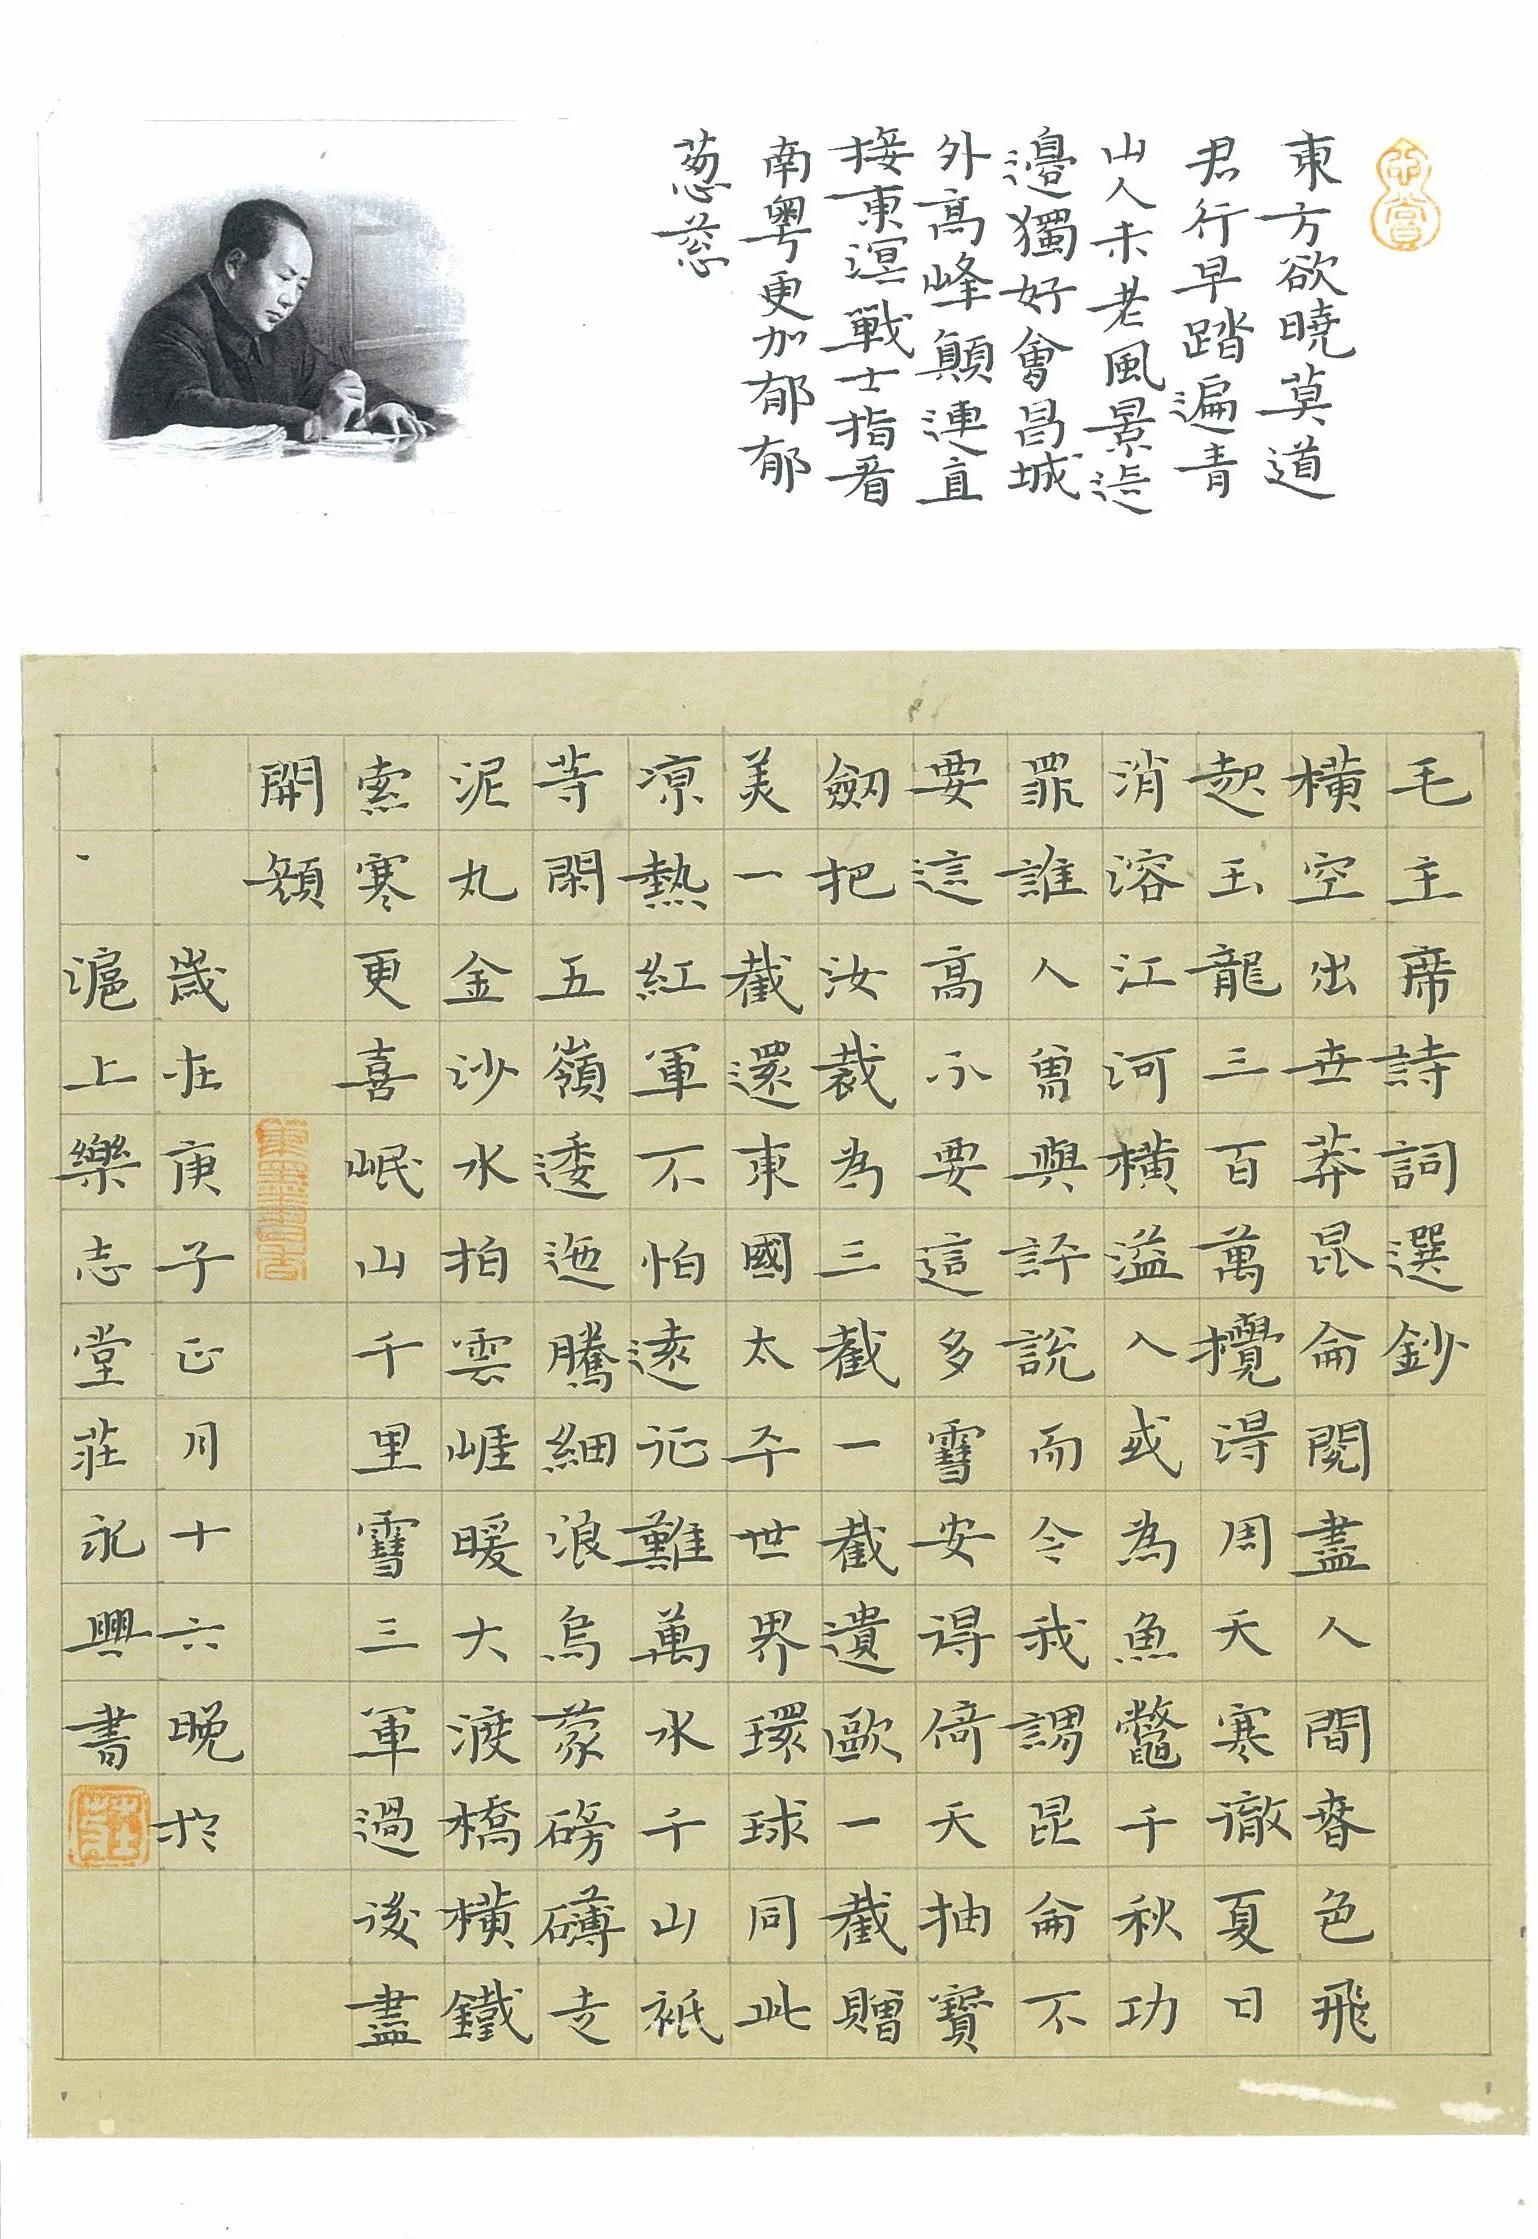 東方欲曉莫道
君行早踏遍青
山人未老風景這
邊獨好會昌城
外高峰顛連直
接東溟戰士指看
南粵更加郁郁
葱蘢
毛主席詩詞選鈔
橫空出世莽昆侖閱盡人間春色飛
起玉龍三百萬攪得周天寒徹夏日
消溶江河橫溢人或為魚鱉千秋功
罪誰人曾與評說而今我謂昆侖不
要這高不要這多雪安得倚天抽寶
劒把汝裁為三截一截遺歐一截贈
美一截還東國太平世界環球同此
涼熱紅軍不怕遠征難萬水千山祇
等閑五嶺逶迤騰細浪烏蒙磅礴走
泥丸金沙水拍雲崖暖大渡橋橫鐵
索寒更喜岷山千里雪三軍過後盡
開顏
歲在庚子正月十六晚於
滬上樂志堂莊永興書